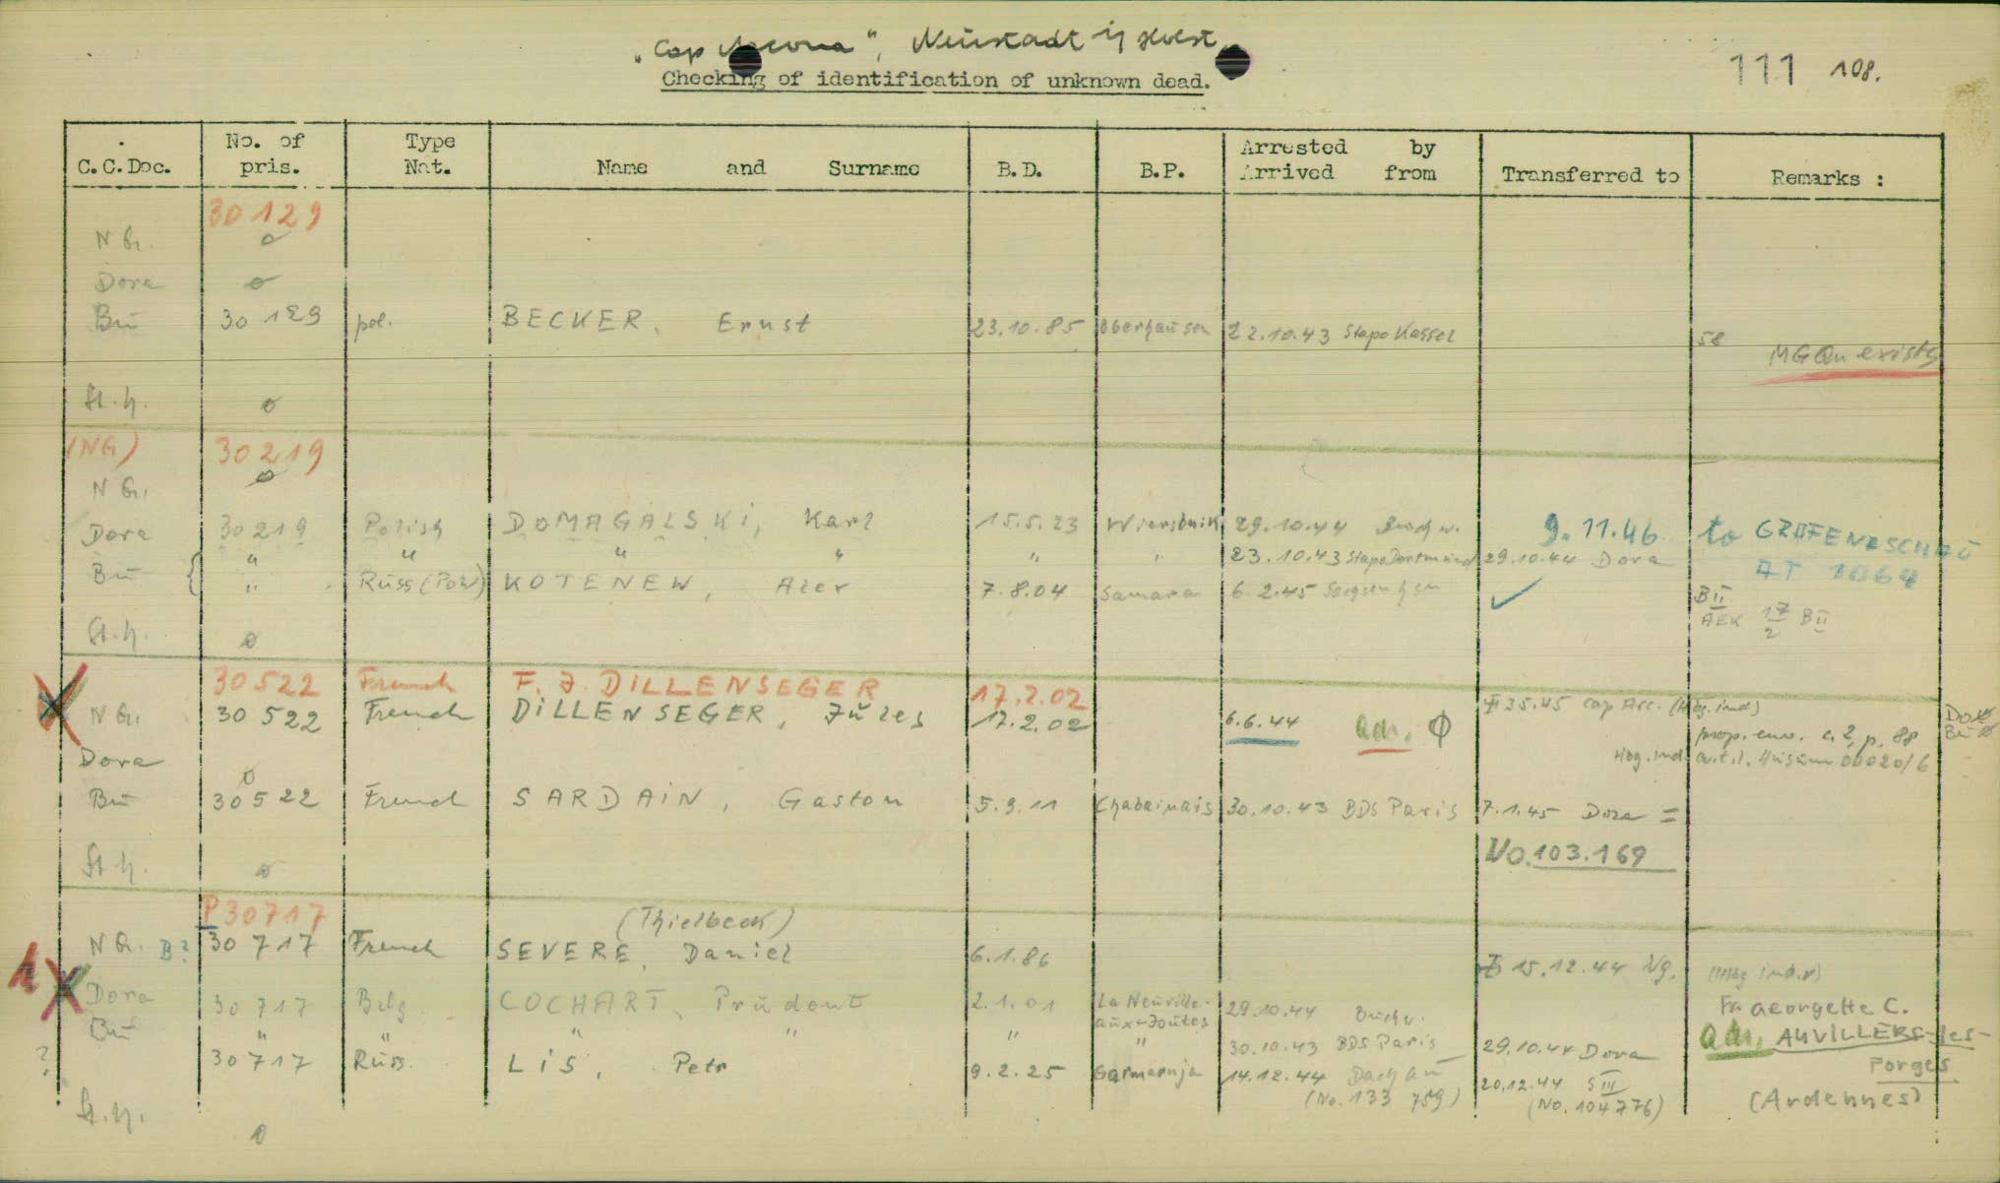 "Cap Arcona", Neustadt i/ Holst.
Checking of identification of unknown dead.
111 108.
C.C.Doc. No. of pris. Type Nat. Name and Surname B.D. B.P. Arrested by Arrived from Transferred to Remarks :
30129
N G. o
Dora o
Bu 30 129 pol. BECKER, Ernst 23.10.85 Oberhausen 22.10.43 Stapo Kassel 58
MGQu exists
St.h. o
(NG) 30219
N G. o
Dora 30219 Polish DOMAGALSKI, Karl 15.5.23 Wiersbnik 29.10.44 Buchw. 9.11.46 to GRAFENESCHAU
Bu " " " " " " 23.10.43 Stapo Dortmund 29.10.44 Dora AT 1064
" Russ (POW) KOTENEW, 7.8.04 Samara 6.2.45 ✓ BII
AEK 17/2 BII
St.h. o
30522 French F. J. DILLENSEGER 17.2.02
N G. 30 522 French DILLENSEGER, Jules 17.2.02 6.6.44 adr. Φ 3.5.45 Cap Arc. (Hbg. ind)
prop. env. c. 2, p. 88
Hbg. ind. Husum 00020/6
Dora o
Bu 30522 French SARDAIN, Gaston 5.9.11 30.10.43 BDS Paris 7.1.45 Dora =
No. 103.169
St.h. o
P30717
(Thielbeck)
N G. B? 30 717 French SEVERE, Daniel 6.1.86 15.12.44 Ng.
1 X Dora 30717 Belg. COCHART, Prudont 2.1.01 La Neuville-aux-Joutes 29.10.44 Buchw. Fr. Georgette C.
Bu " " " " " " 30.10.43 BDS Paris 29.10.44 Dora adr. AUVILLERS-les-Forges
? 30717 Russ. LIS, Petr 9.2.25 14.12.44 Dachau 20.12.44 S III
(No. 133 759) (No. 104776) (Ardennes)
St.h. o